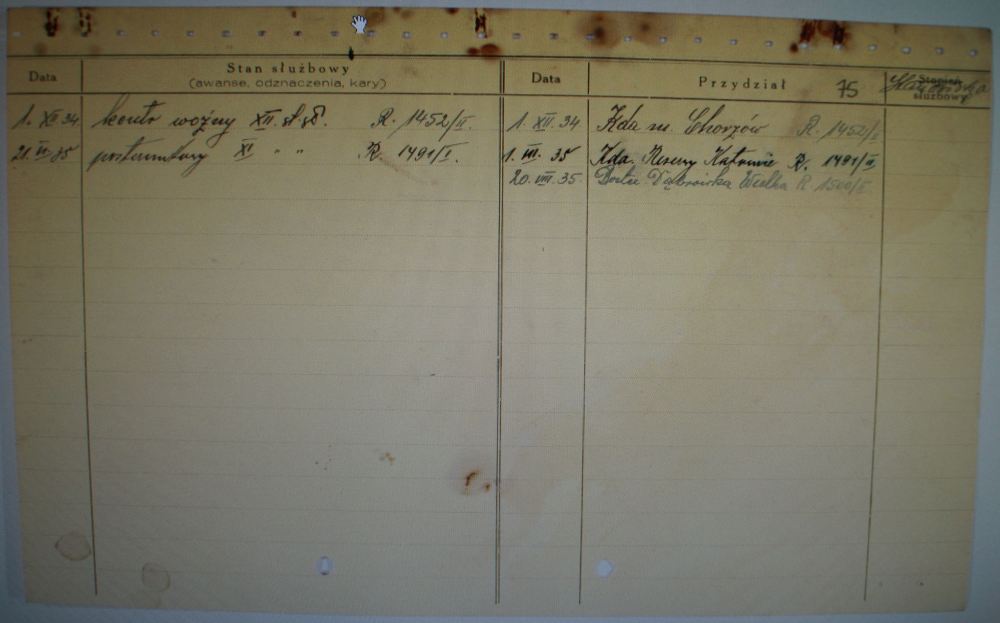 Data Stan służbowy Data Przydział 75 Stopień
(awanse, odznaczenia, kary) służbowy
1. XII. 34 kontr woźny XII. st. sł. R. 1452/II. 1. XII. 34 Kda m. Chorzów R. 1452/I
21. VI. 35 posterunkowy XI " " R. 1491/I. 1. VII. 35 Kda. Rezerwy Katowice R. 1491/I
20. VIII. 35. Dąbrówka Wielka R 1500/I